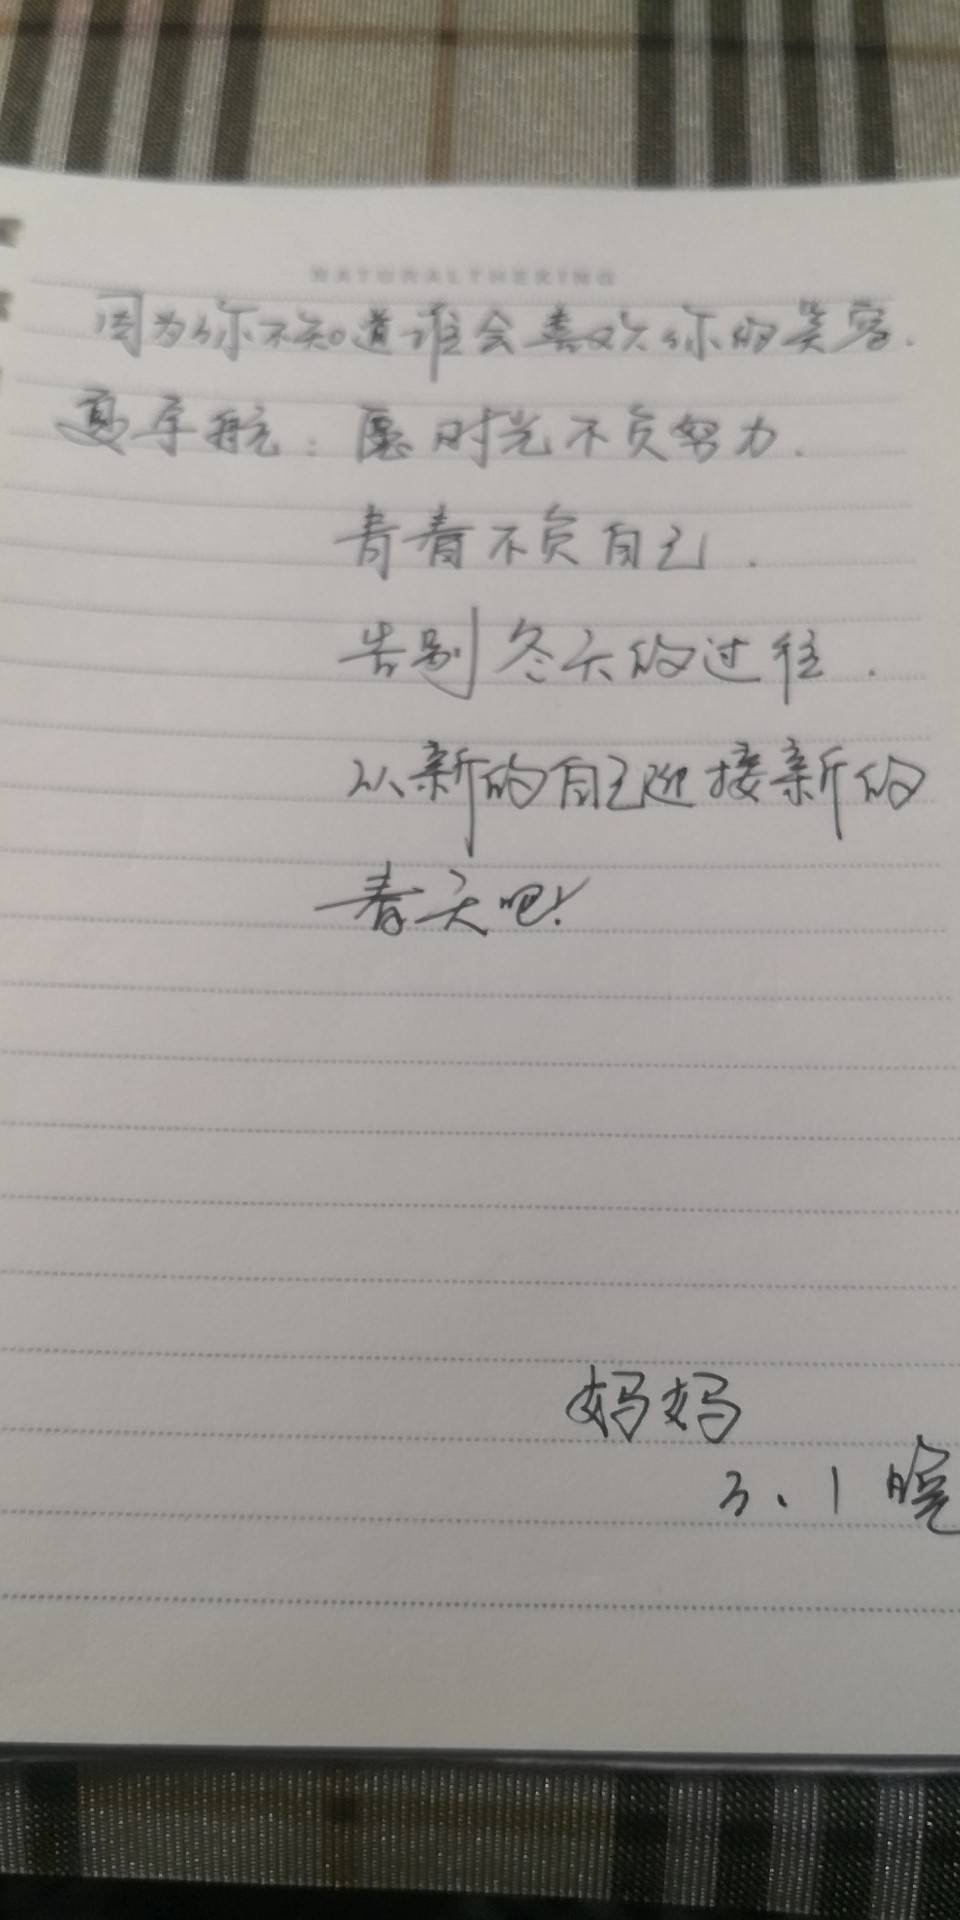 NATURALTHEKING
因为你不知道谁会喜欢你的笑容.
夏宇航: 愿时光不负努力.
青春不负自己.
告别冬天的过往.
以新的自己迎接新的
春天吧!
妈妈
3、1 晚